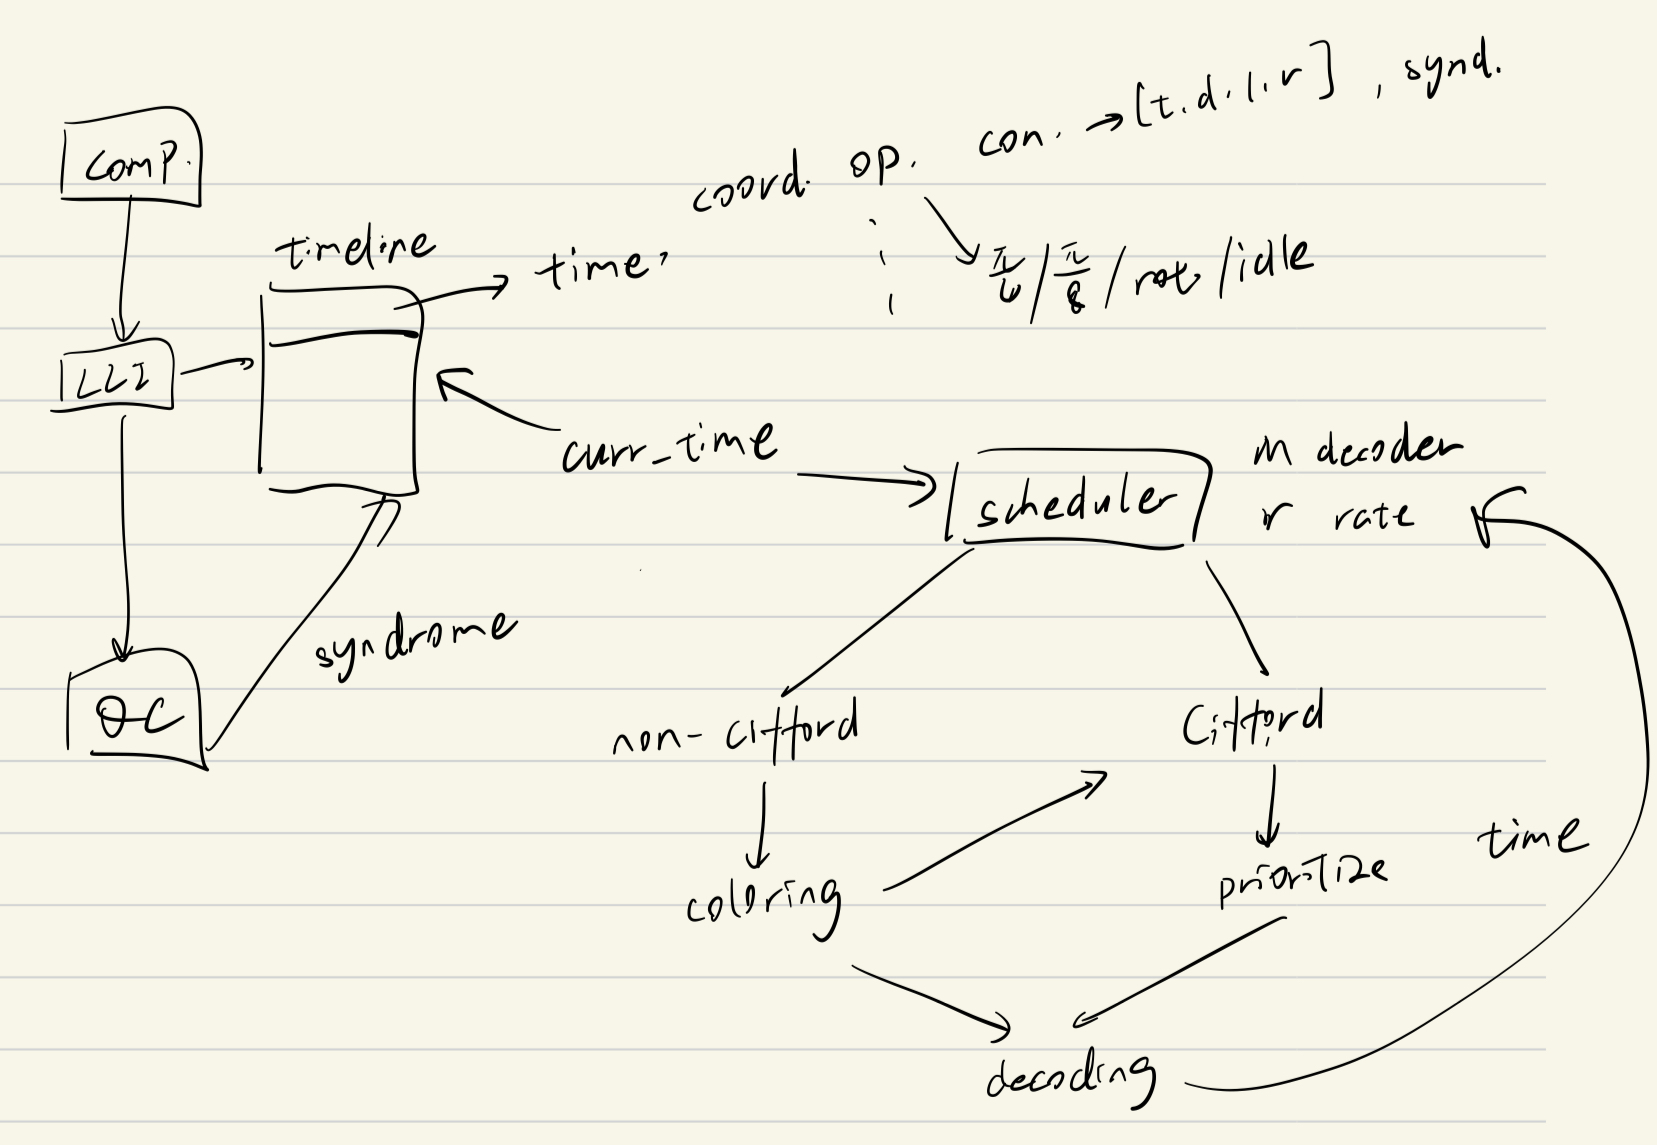 comp.
LLI
QC
timeline
time, coord. op. con. → [t.d.l.r], synd.
π/4 / π/8 / rot / idle
curr_time
syndrome
scheduler
M decoder
r rate
non-clifford
Clifford
coloring
prioritize
time
decoding